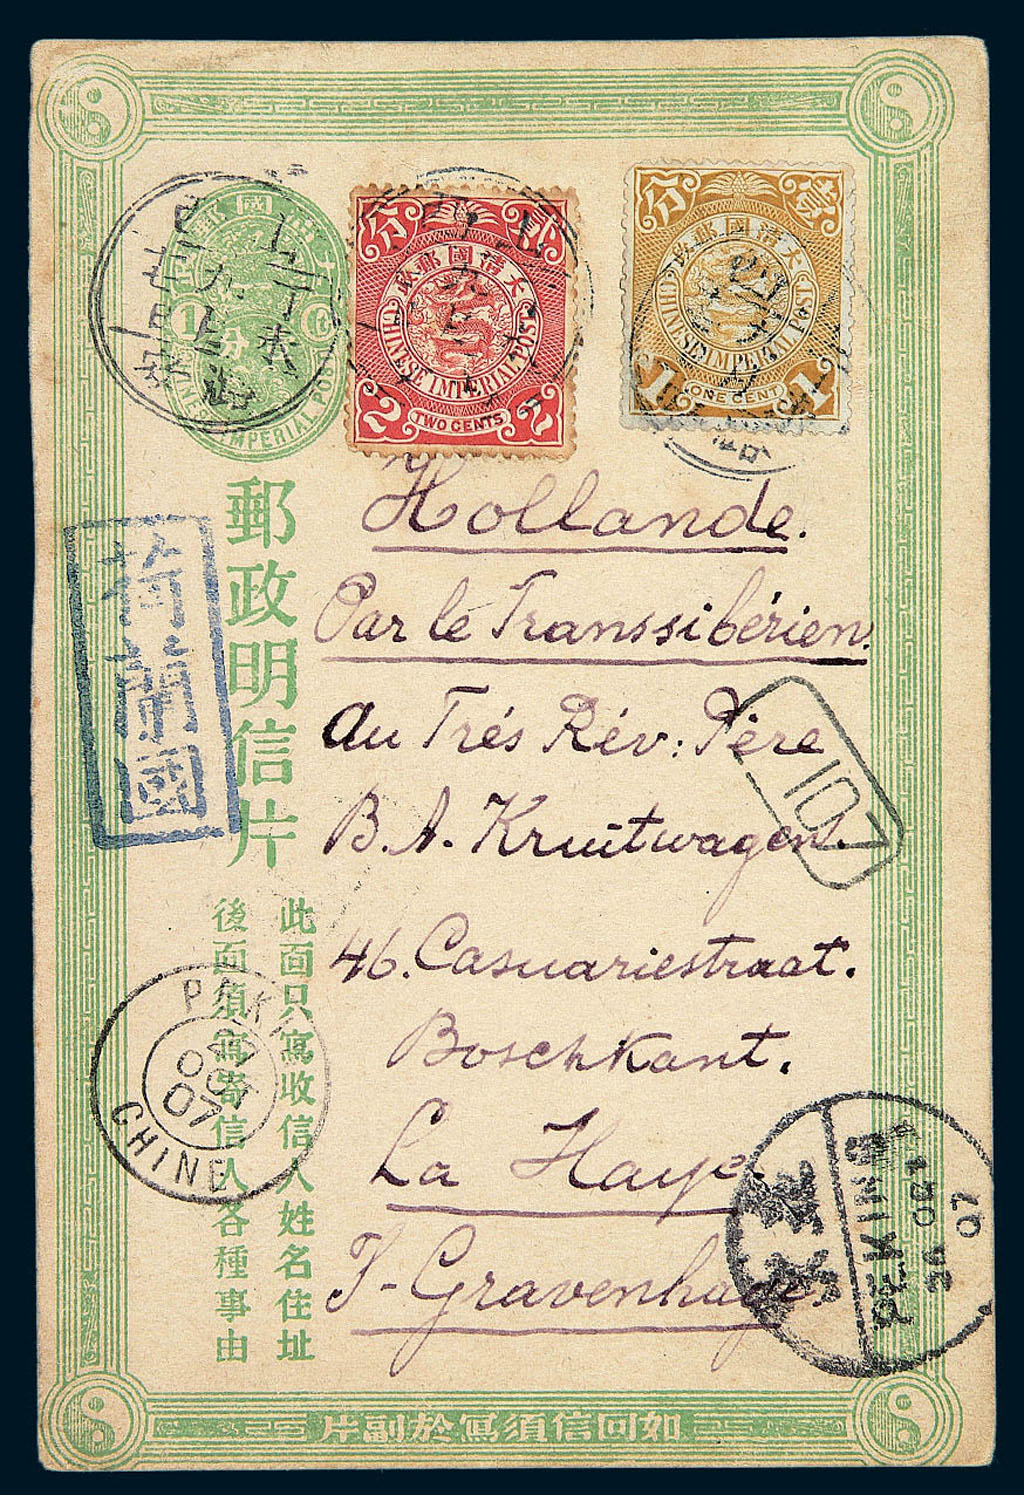 大清國郵政
貳分
CHINESE IMPERIAL POST
2 TWO CENTS 2
大清國郵政
壹分
CHINESE IMPERIAL POST
1 ONE CENT 1
分
IMPERIAL POST
郵政明信片
荷蘭國
Hollande.
Par le Transsibérien.
Au Trés Rév: Père
B. A. Kruitwagen.
107
46. Casuariestraat.
Boschkant.
La Haye.
S-Gravenhage
此面只寫收信人姓名住址
後面須寫寄信人各種事由
OCT
07
CHINE
PEKING
07
如回信須寫於副片